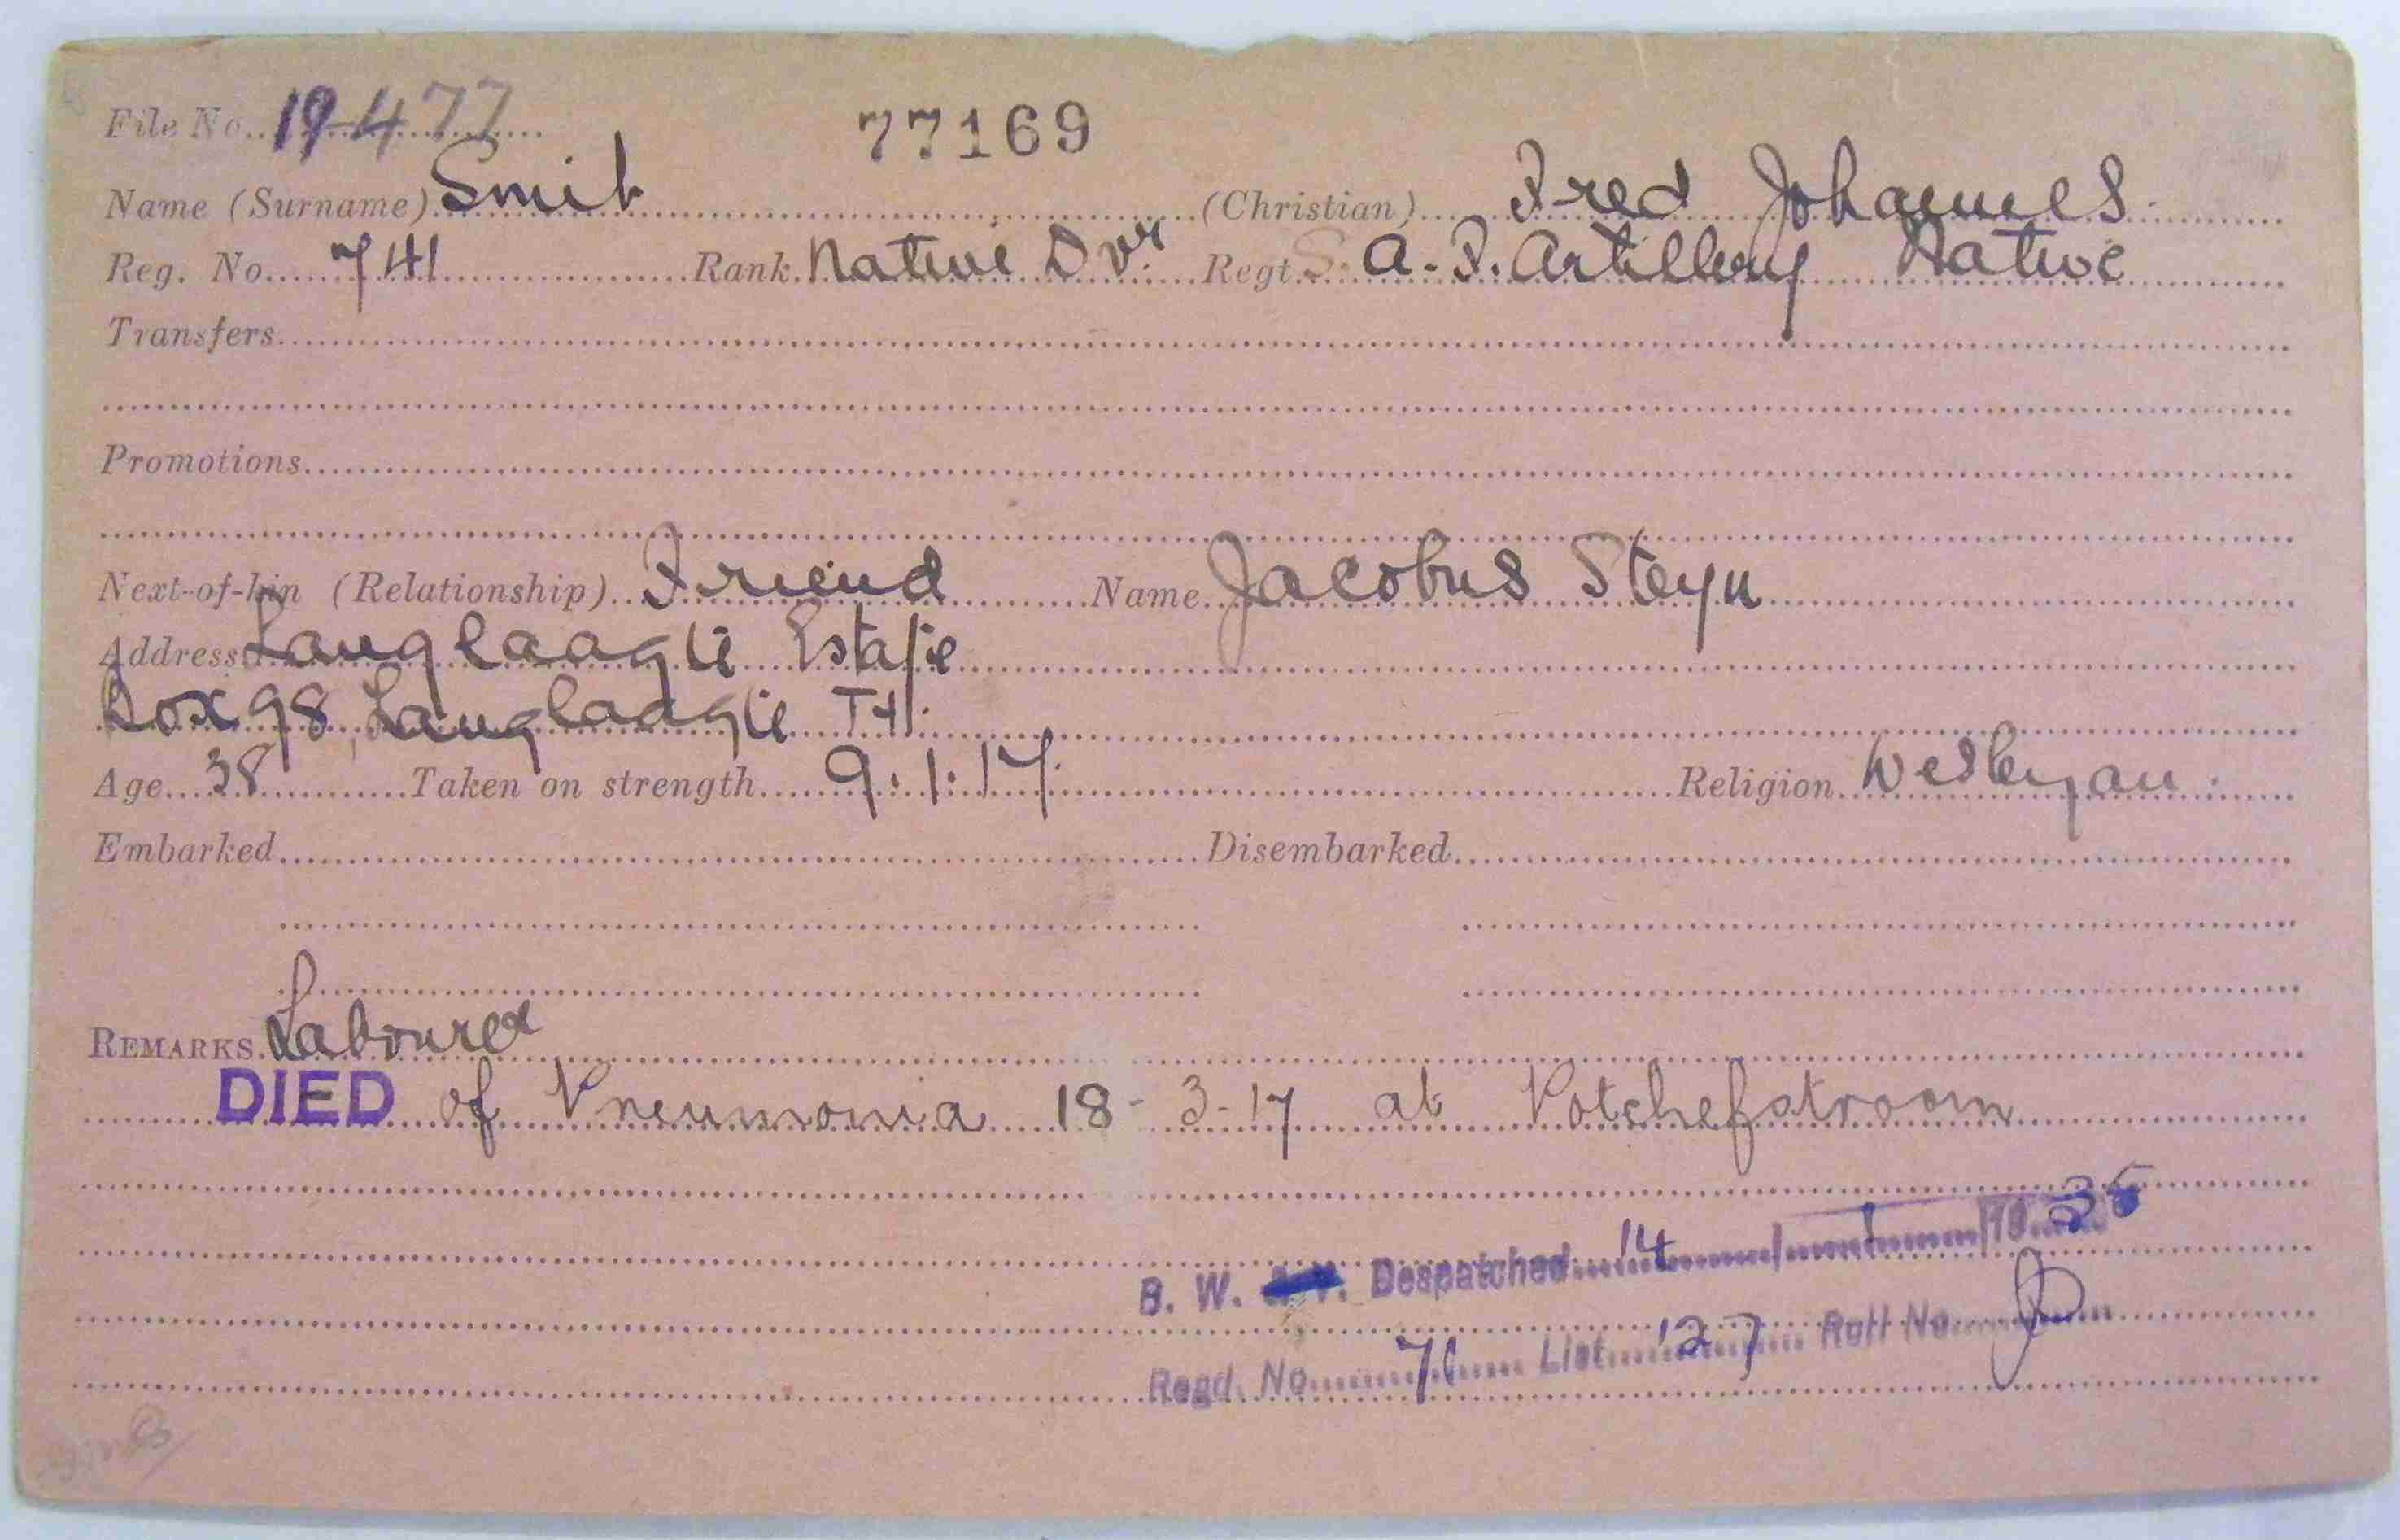 File No. 19477
77169
Name (Surname) Smit (Christian) Fred Johannes
Reg. No. 741 Rank Native Dvr Regt. S. A. F. Artillery Native
Transfers
Promotions
Next-of-kin (Relationship) Friend Name Jacobus Steyn
Address Langlaagte Estate
Box 98, Langlaagte
Age 38 Taken on strength 9.1.17. Religion Wesleyan.
Embarked Disembarked
REMARKS. Labourer
DIED of Pneumonia 18-3-17 at Potchefstroom
B. W. Despatched 14 / 1 / 19 35
Regd. No. 71 List 127 Roll No.